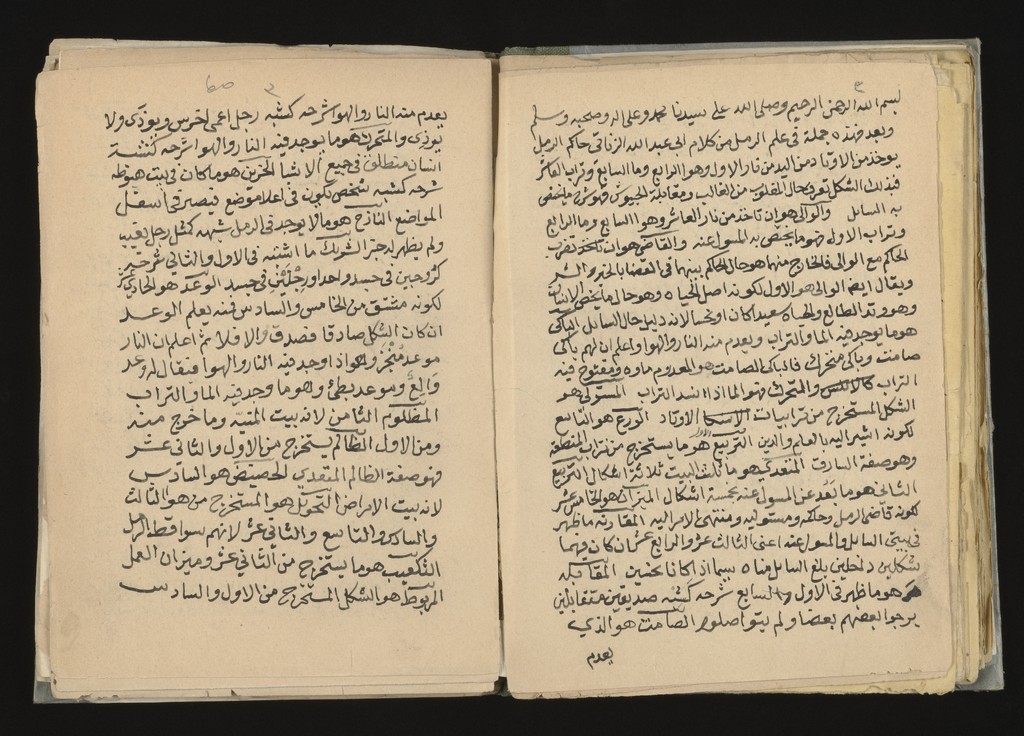 ٣
بسم الله الرحمن الرحيم وصلى الله على سيدنا محمد وعلى اله وصحبه وسلم
وبعد فهذه جملة في علم الرمل من كلام ابي عبد الله الزناتي حاكم الرمل
يوخذ من الاوتاد من اليد من نار الاول وهو الرابع وما السابع وتراب العاشر
فبذلك الشكل تعرف حال المغلوب من الغالب ومقابلة الجيوش فهو شرح ما يختفى
به السائل والوالي هو ان تاخذ من نار العاشر وهوا السابع وما الرابع
وتراب الاول فهو ما يختص به المسول عنه والقاضي هو ان تضرب
الحاكم مع الوالي فالخارج منهما هو حال الحاكم بينهما في القضا بالخير والشر
ويقال ايضا الوالي هو الاول لكونه اصل الحياه وهو حال ما يخص الانسان
وهو وتد الطالع والحياه سعيدا كان او نحسا لانه دليل حال السائل الباكي
هو ما يوجد فيه الما والتراب ويعدم منه النار والهوا واعلم ان لهم باكي
صامت وباكي متحرك فالباكي الصامت هو المعدوم ماوه ومفتوح فيه
التراب والمتحرك فهو الما اذا انسد التراب المستولي هو
الشكل المستخرج من ترابيات الاوتاد الورع هو التاسع
لكونه اشير اليه بالعلم والدين التربيع هو ما يستخرج من تراب المنطقه
وهو صفة السارق المتعدي هو ما ثلث البيت ثلاثة اشكال التربيع
الثاني هو ما بعد عن المسول عنه بخمسة اشكال الميزان هو الخامس عشر
لكونه قاضي الرمل وحاكمه ومستوليه ومنتهى الامر اليه المقارنه ما ظهر
في بيتي السائل والمسول عنه اعني الثالث عشر والرابع عشر ان كان فيهما
شكلين داخلين بلغ السائل مناه سيما اذا كانا نحسين المقابله
هو ما ظهر في الاول والسابع شرحه كشبه صديقين متقابلين
يرجوا بعضهم بعضا ولم يتواصلوا الصامت هو الذي
يعدم
٣
يعدم منه النار والهوا شرحه كشبه رجل اعمى اخرس ويوذي ولا
يوذي والمتحرك هو ما يوجد فيه النار والهوا شرحه كشبه
انسان منطلق في جميع الاشيا الحزين هو ما كان في بيت هبوطه
شرحه كشبه شخص يكون في اعلا موضع فيصير في اسفل
المواضع النازح هو ما لا يوجد في الرمل شبهه كمثل رجل يغيب
ولم يظهر له خبر الشريك ما اشتبه في الاول والثاني شرحه
كزوجين في جسد واحد او رجلين في جسد الوعد هو الحادي عشر
لكونه متشقق من الخامس والسادس فمنه يعلم الوعد
ان كان الشكل صادقا فصدق والا فلا ثم اعلم ان النار
موعد منجز واذا وجد فيه النار والهوا فيقال له وعد
والغ وموعد بطئ وهو ما وجد فيه الما والتراب
المظلوم الثامن لانه بيت المنيه وما خرج منه
ومن الاول الظالم يستخرج من الاول والثاني عشر
فهو صفة الظالم المتعدي الحضيض هو السادس
لانه بيت الامراض التحويل هو المستخرج من هو الثالث
والسادس والتاسع والثاني عشر لانهم سواقط الرمل
التكعيب هو ما يستخرج من الثاني عشر وميزان العمل
المربوط هو الشكل المستخرج من الاول والسادس